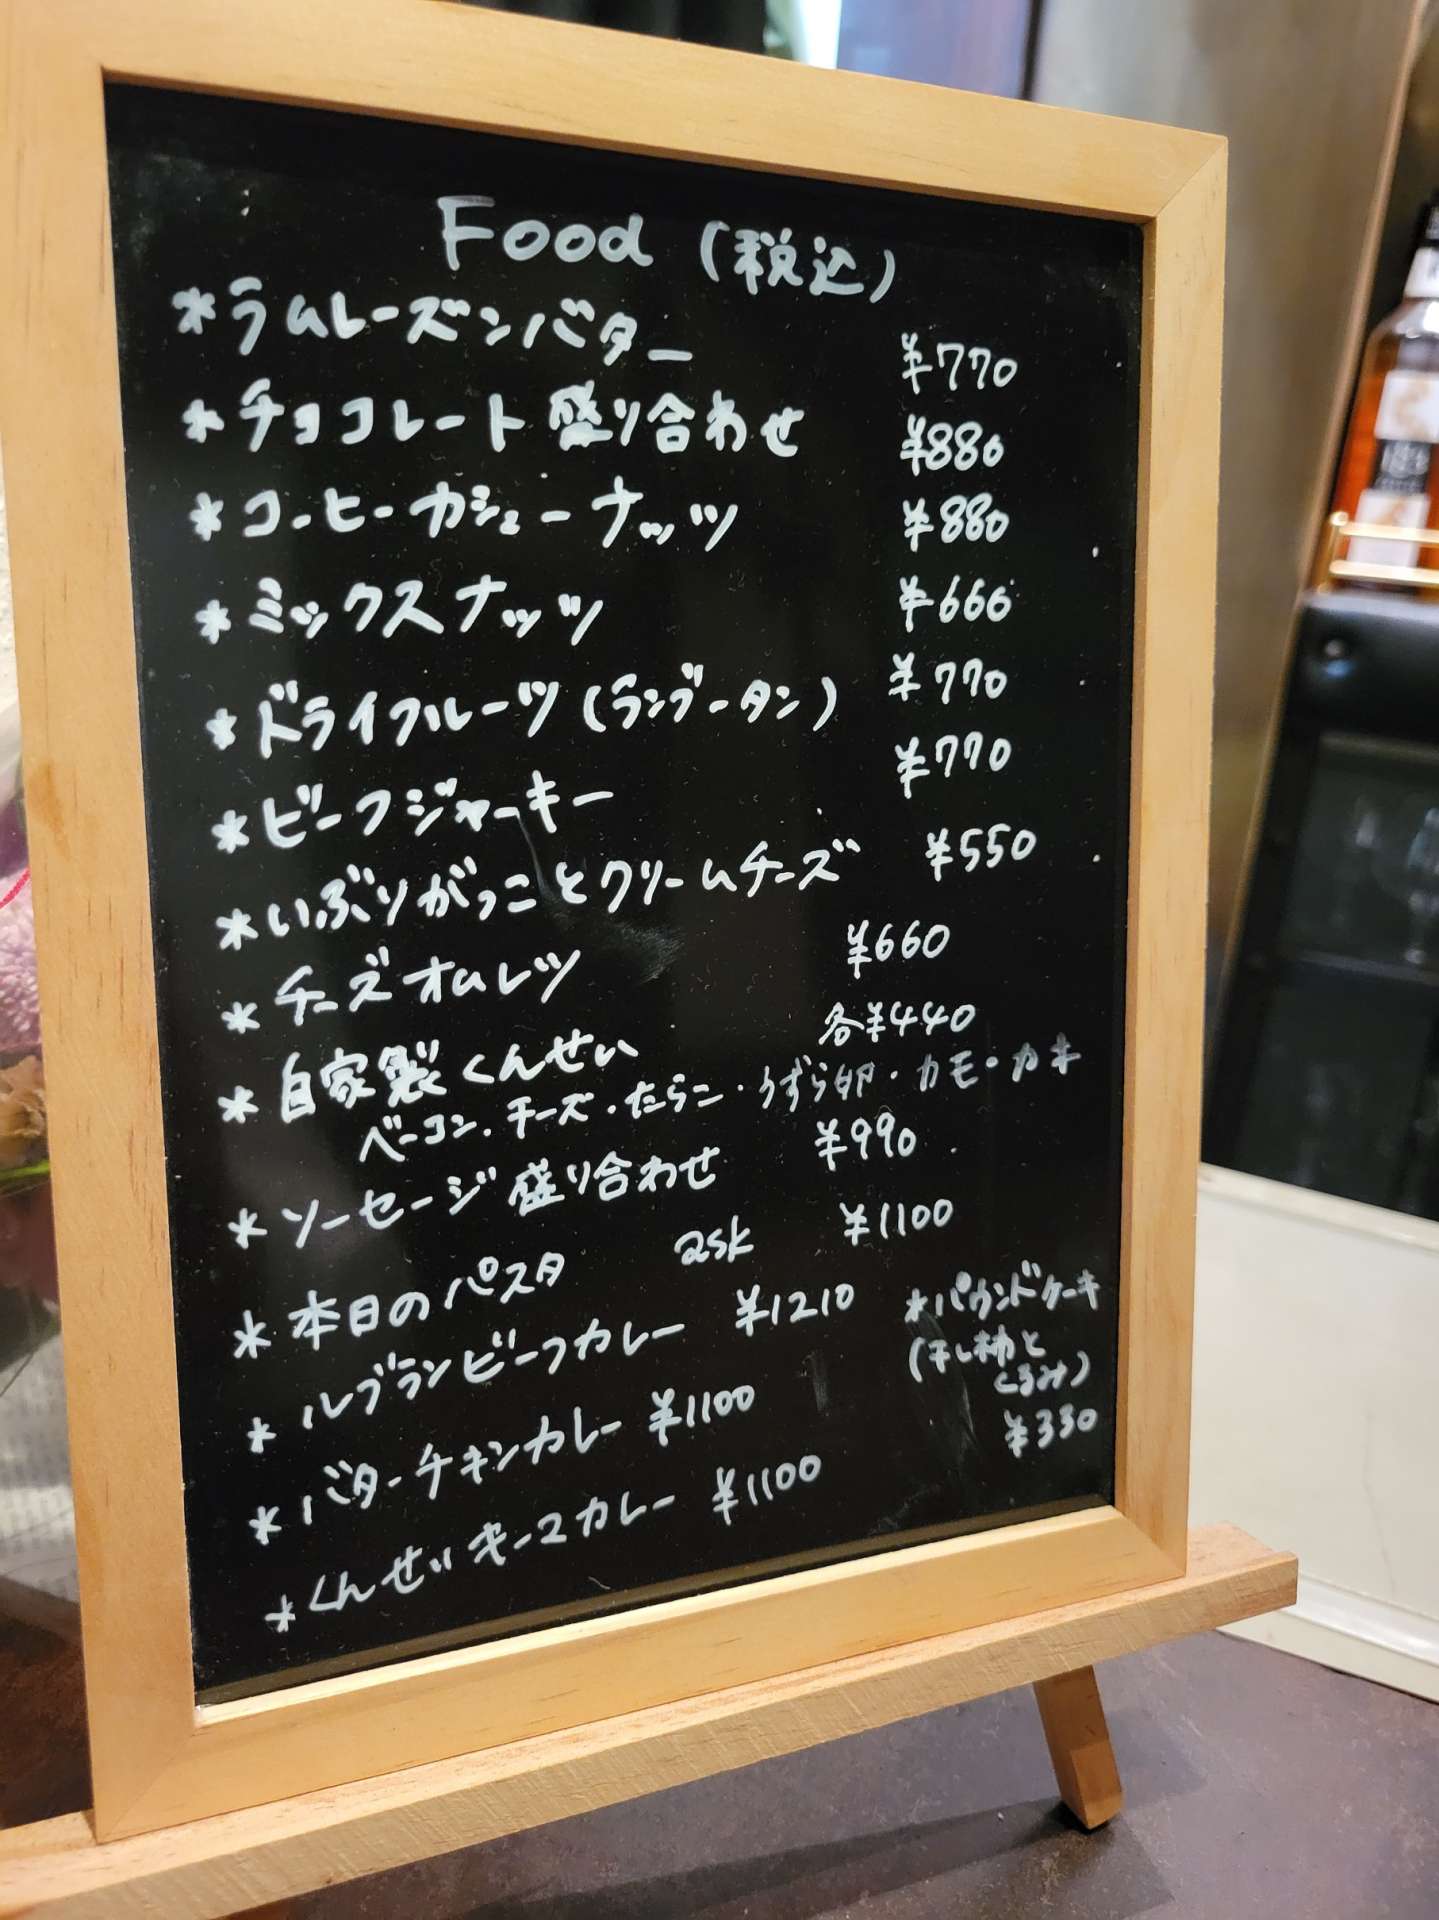 Food (税込)
*ラムレーズンバター ¥770
*チョコレート盛り合わせ ¥880
*コーヒーカシューナッツ ¥880
*ミックスナッツ ¥660
*ドライフルーツ(ランブータン) ¥770
*ビーフジャーキー ¥770
*いぶりがっことクリームチーズ ¥550
*チーズオムレツ ¥660
*自家製くんせい 各¥440
ベーコン.チーズ・たらこ・うずら卵・カモ・カキ
*ソーセージ盛り合わせ ¥990
*本日のパスタ ask ¥1100
*ルブランビーフカレー ¥1210
*バターチキンカレー ¥1100
*くんせいキーマカレー ¥1100
*パウンドケーキ
(干し柿と
くるみ)
¥330